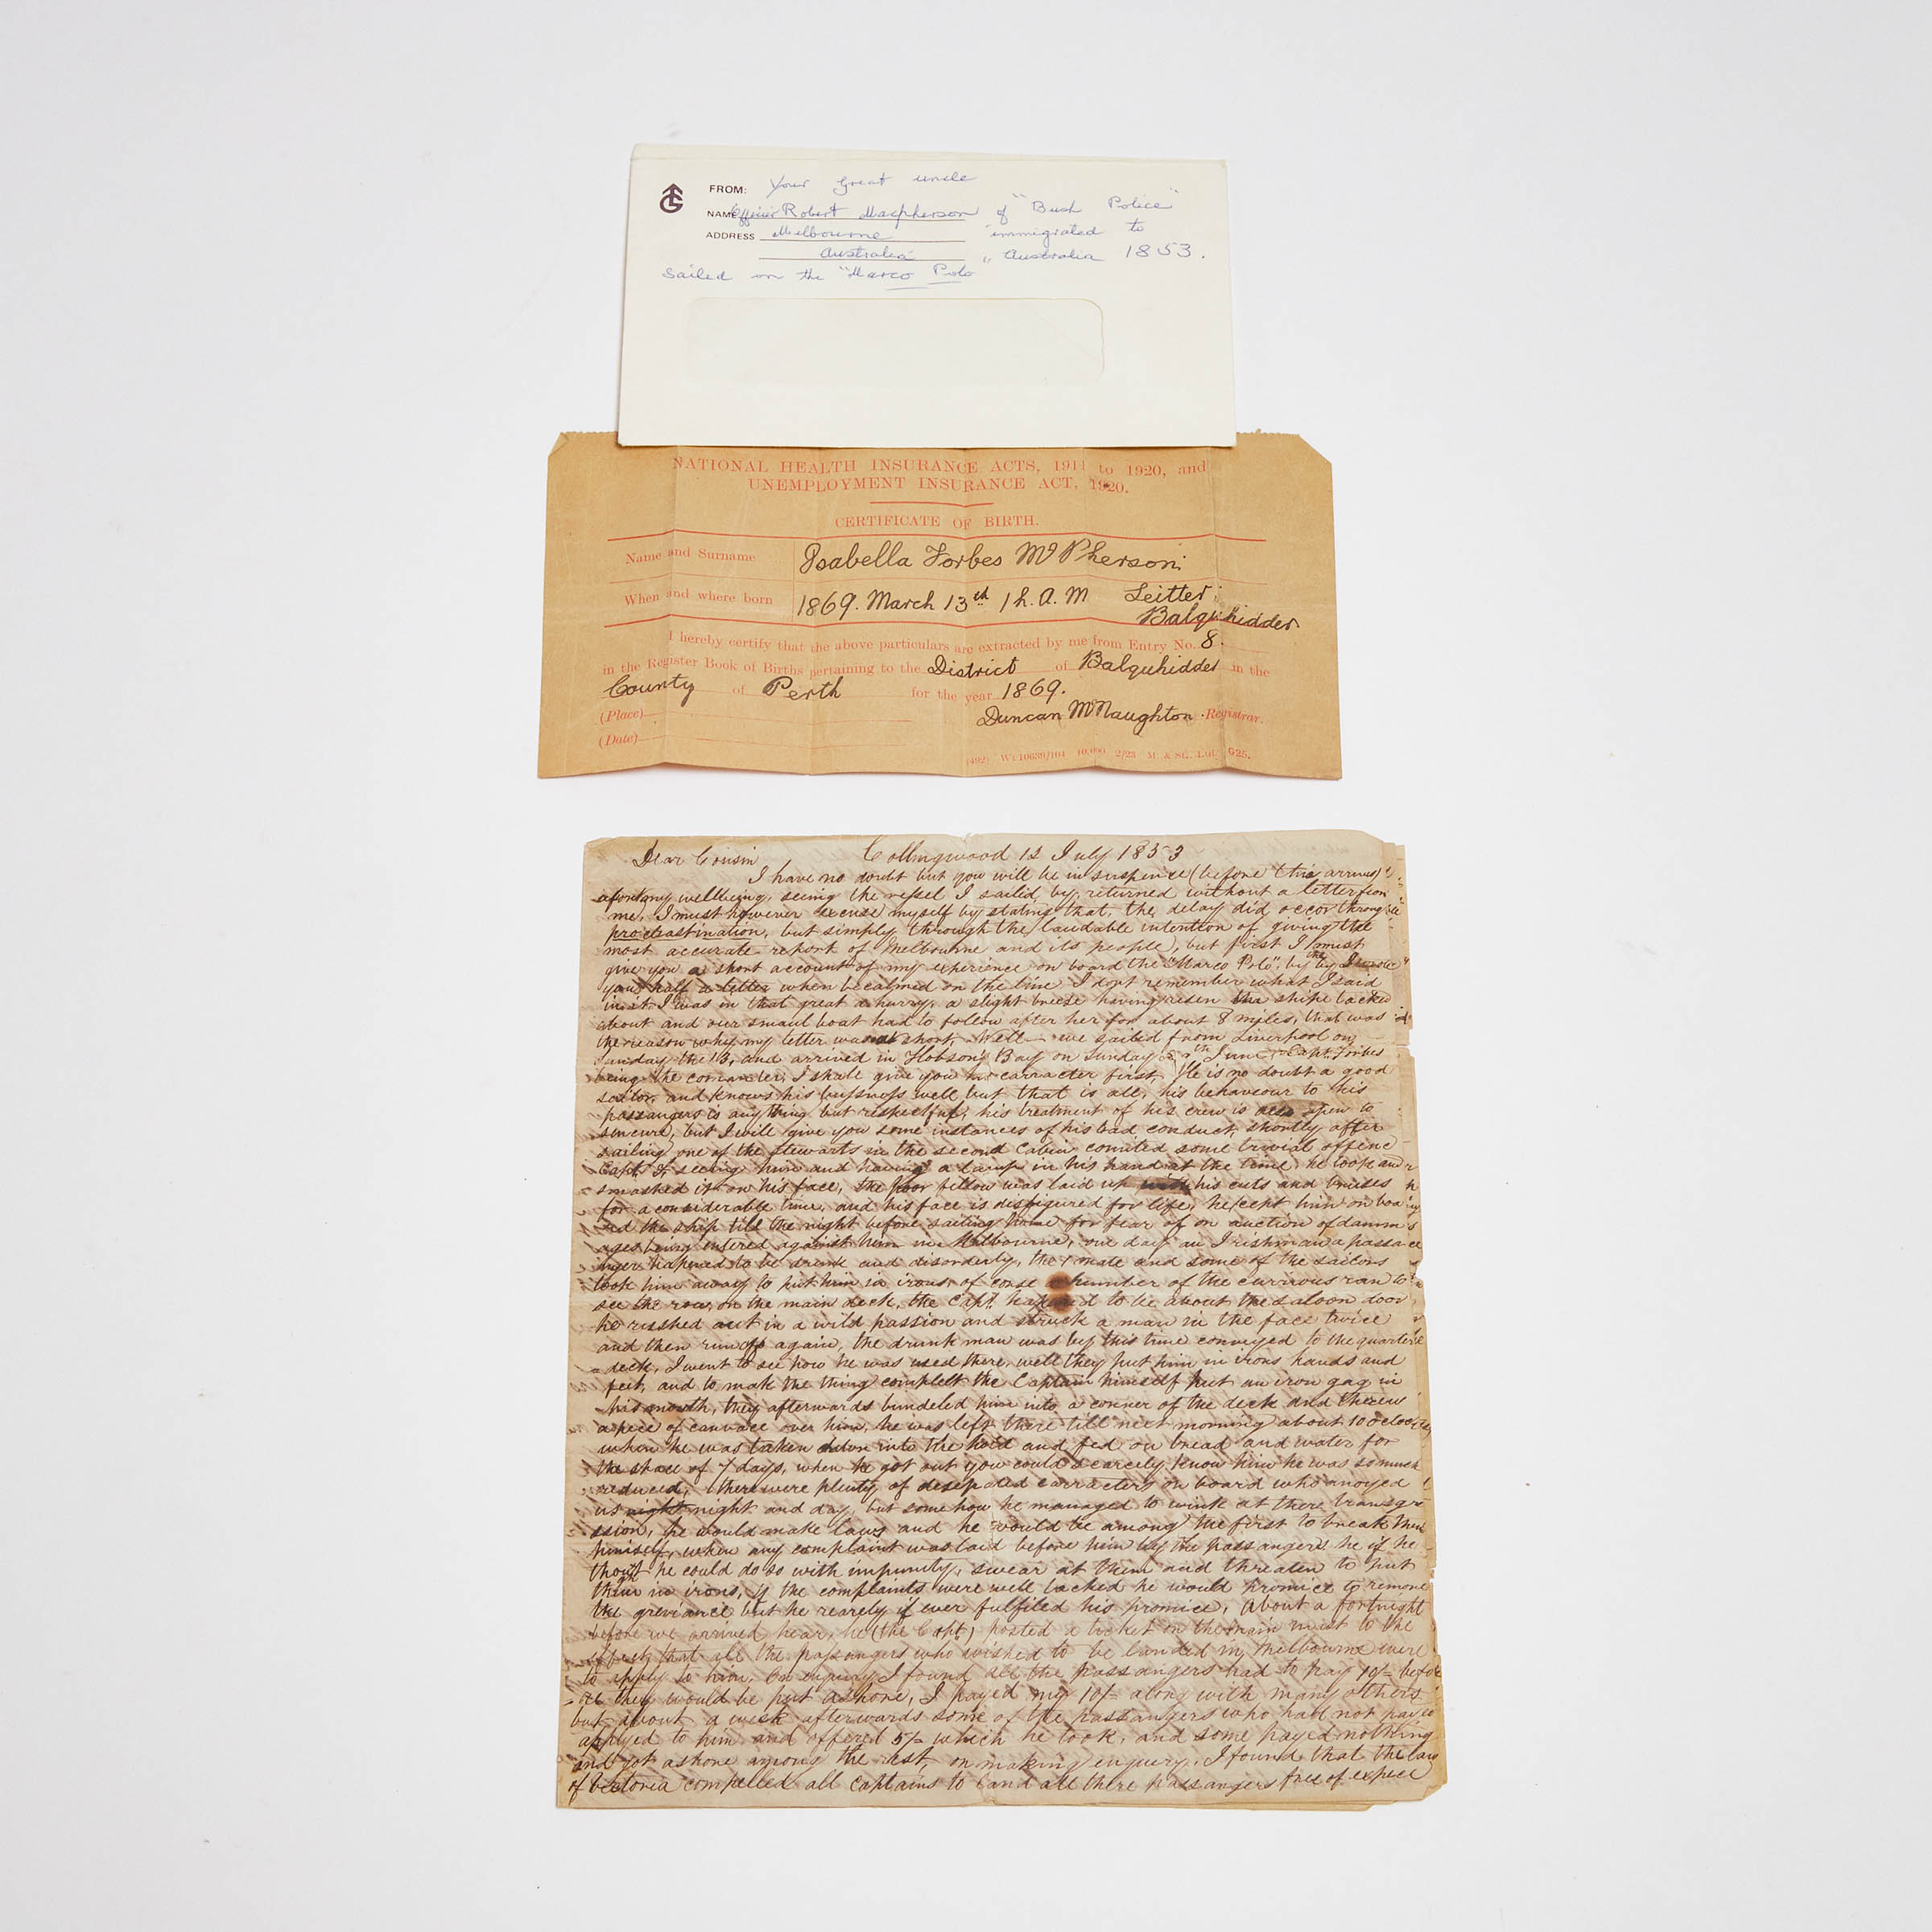 FROM: Your great uncle
NAME Officer Robert Macpherson of "Bush Police"
ADDRESS Melbourne immigrated to
Australia " Australia 1853.
Sailed on the "Marco Polo
NATIONAL HEALTH INSURANCE ACTS, 1911 to 1920, and
UNEMPLOYMENT INSURANCE ACT, 1920.
CERTIFICATE OF BIRTH.
Name and Surname Isabella Forbes McPherson
When and where born 1869. March 13th 1 h. A. M Leitter
Balquhidder
I hereby certify that the above particulars are extracted by me from Entry No. 8.
in the Register Book of Births pertaining to the District of Balquhidder in the
County of Perth for the year 1869.
(Place) Duncan McNaughton Registrar.
(Date)
(492) Wt. 10639/104 10,000 2/23 M. & SC. Ltd. G25.
Dear Cousin Collingwood 12 July 1853
I have no doubt but you will be in suspence (before this arrives)
my wellbeing, seeing the vessel I sailed by, returned without a letter from
me, I must however excuse myself by stating that, the delay did occor through
procrastination, but simply through the laudable intention of giving the
most accurate report of Melbourne and its people, but first I must
give you a short account of my experience on board the "Marco Polo", by the by I wrote
you half a letter when becalmed on the line I dont remember what I said
in it I was in that great a hurry, a slight breese having risen the ship tacked
about and our smaul boat had to follow after her for about 8 miles, that was
the reason why my letter was short, Well we sailed from Liverpool on
Sunday the 13, and arrived in Hobson's Bay on Sunday June, Capt. Forbes
being the comander, I shall give you his carracter first, He is no doubt a good
sailor, and knows his bussness well but that is all, his behaviour to his
passangers is any thing but respectful, his treatment of his crew is open to
sencure, but I will give you some instances of his bad conduct, shortly after
sailing one of the stewarts in the second Cabin comited some trivial offence
Capt. F seeing him and having a lamp in his hand at the time, he took and
smashed it on his face, the poor fellow was laid up with his cuts and bruises
for a considerable time, and his face is disfigured for life, he kept him on boa
rd the ship till the night before sailing home for fear of an auction of damm
ages being entered against him in Melbourne, one day an Irishman a passa
nger hapened to be drunk and disorderly, the 1 mate and some of the sailors
took him away to put him in irons, of corse a number of the currious ran to
see the row, on the main deck, the Capt. hapened to be about the saloon door
he russhed out in a wild passion and struck a man in the face twice
and then run off again, the drunk man was by this time conveyed to the quarter
deck, I went to see how he was used there, well they put him in irons hands and
feet, and to make the thing complett the Captain himself put an iron gag in
his mouth, they afterwards bundeled him into a corner of the deck and threw
a piece of canvace over him, he was left there till next morning about 10 oclock
when he was taken down into the hold and fed on bread and water for
the space of 7 days, when he got out you could scarcely know him he was so much
reduced, there were plenty of desperated carracters on board who anoyed
us night night and day, but some how he managed to wink at there transgre
ssion, he would make laws and he would be among the first to break them
himself, when any complaint was laid before him by the passangers he if he
thought he could do so with impunity, swear at them and threaten to put
them in irons, if the complaints were well backed he would promice to remove
the greviance but he rearely if ever fulfiled his promice, About a fortnight
before we arrived hear, he (the Capt) posted a ticket on the main mast to the
effect, that all the passangers who wished to be landed in Melbourne were
to apply to him, On enquiry I found all the passangers had to pay 10/- before
they would be put ashore, I payed my 10/- along with many others
but about a week afterwards some of the passangers who had not payed
applyed to him and offered 5/- which he took, and some payed nothing
and got ashore among the rest, on making enquiry, I found that the law
of Victoria compelled all captains to land all there passangers free of expece